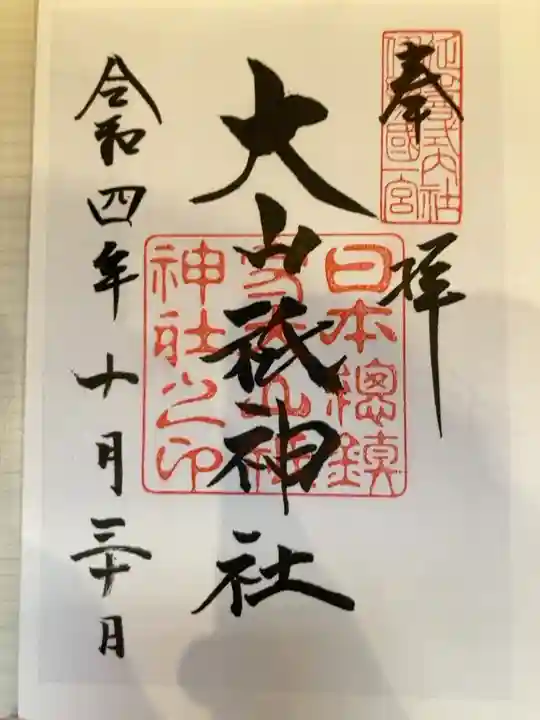 奉拝
延喜式内社
伊予國一宮
大山祇神社
日本總鎮
守大山祇
神社之印
令和四年十月三十日